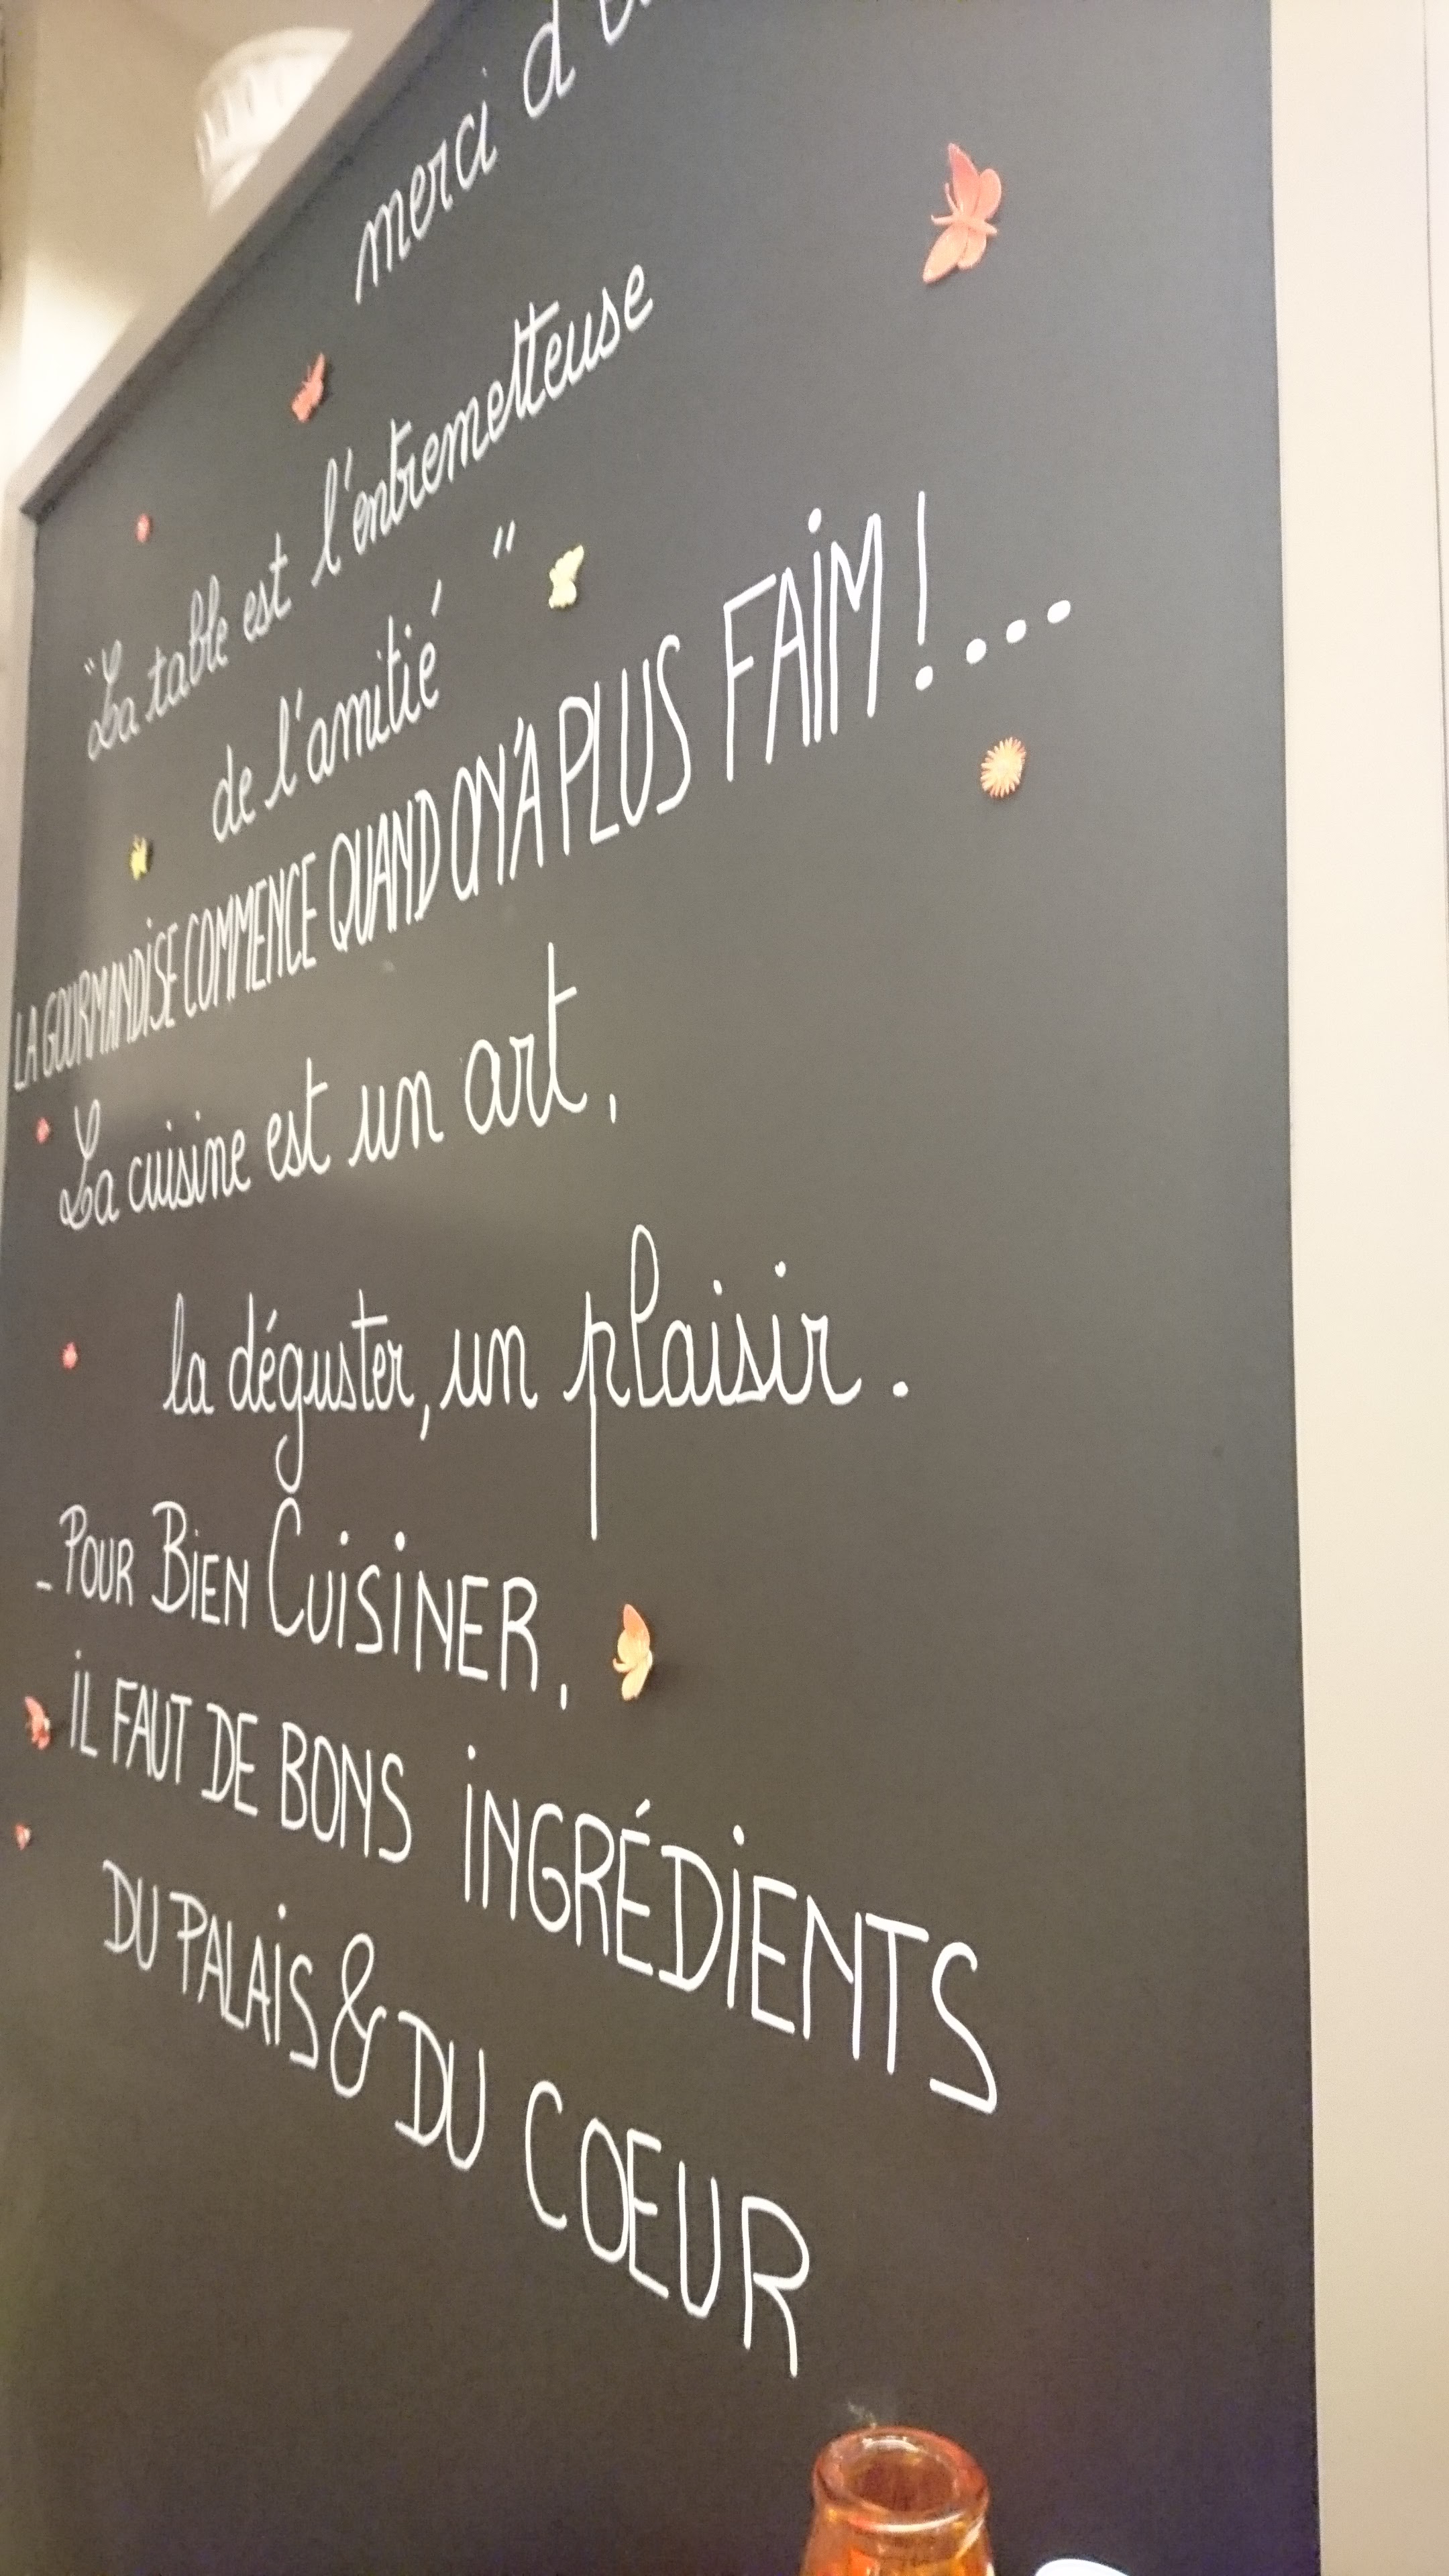 merci d'
"La table est l'entremetteuse
de l'amitié"
LA GOURMANDISE COMMENCE QUAND ON'A PLUS FAIM!...
La cuisine est un art,
la déguster, un plaisir.
- POUR BIEN CUISINER,
IL FAUT DE BONS INGRÉDIENTS
DU PALAIS & DU COEUR